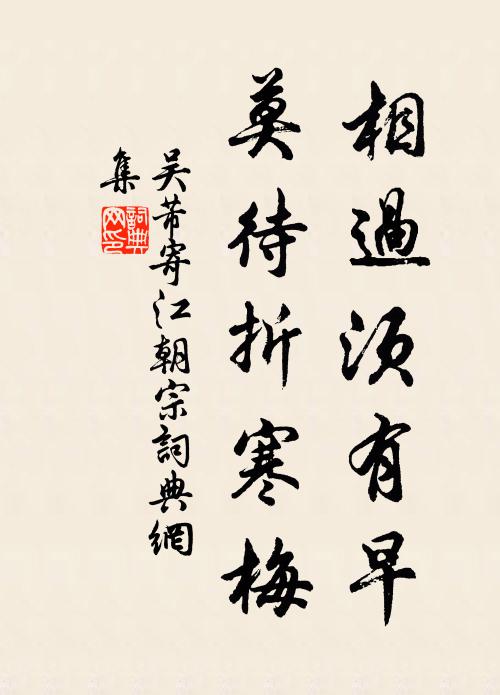 相過須有早
莫待折寒梅
吴芾寄江朝宗詞典網
集
詞典網印